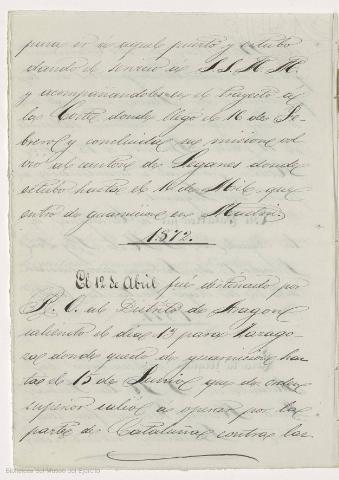 para ir á aquel puerto y estubo
dando el servicio á S.S.M.M.
y acompañandoles en el trayecto á
la Corte donde llegó el 16 de Fe-
brero y concluida su mision vol
vió al canton de Leganes donde
estubo hasta el 1º de Abl. que
entró de guarnicion en Madrid.
1872.
El 12 de Abril fué destinado por
R. O. al Distrito de Aragon
saliendo el dia 13 para Zarago-
za donde quedó de guarnicion has-
ta el 15 de Junio que de orden
superior salió á operar por la
parte de Cataluña contra las
Biblioteca del Museo del Ejército